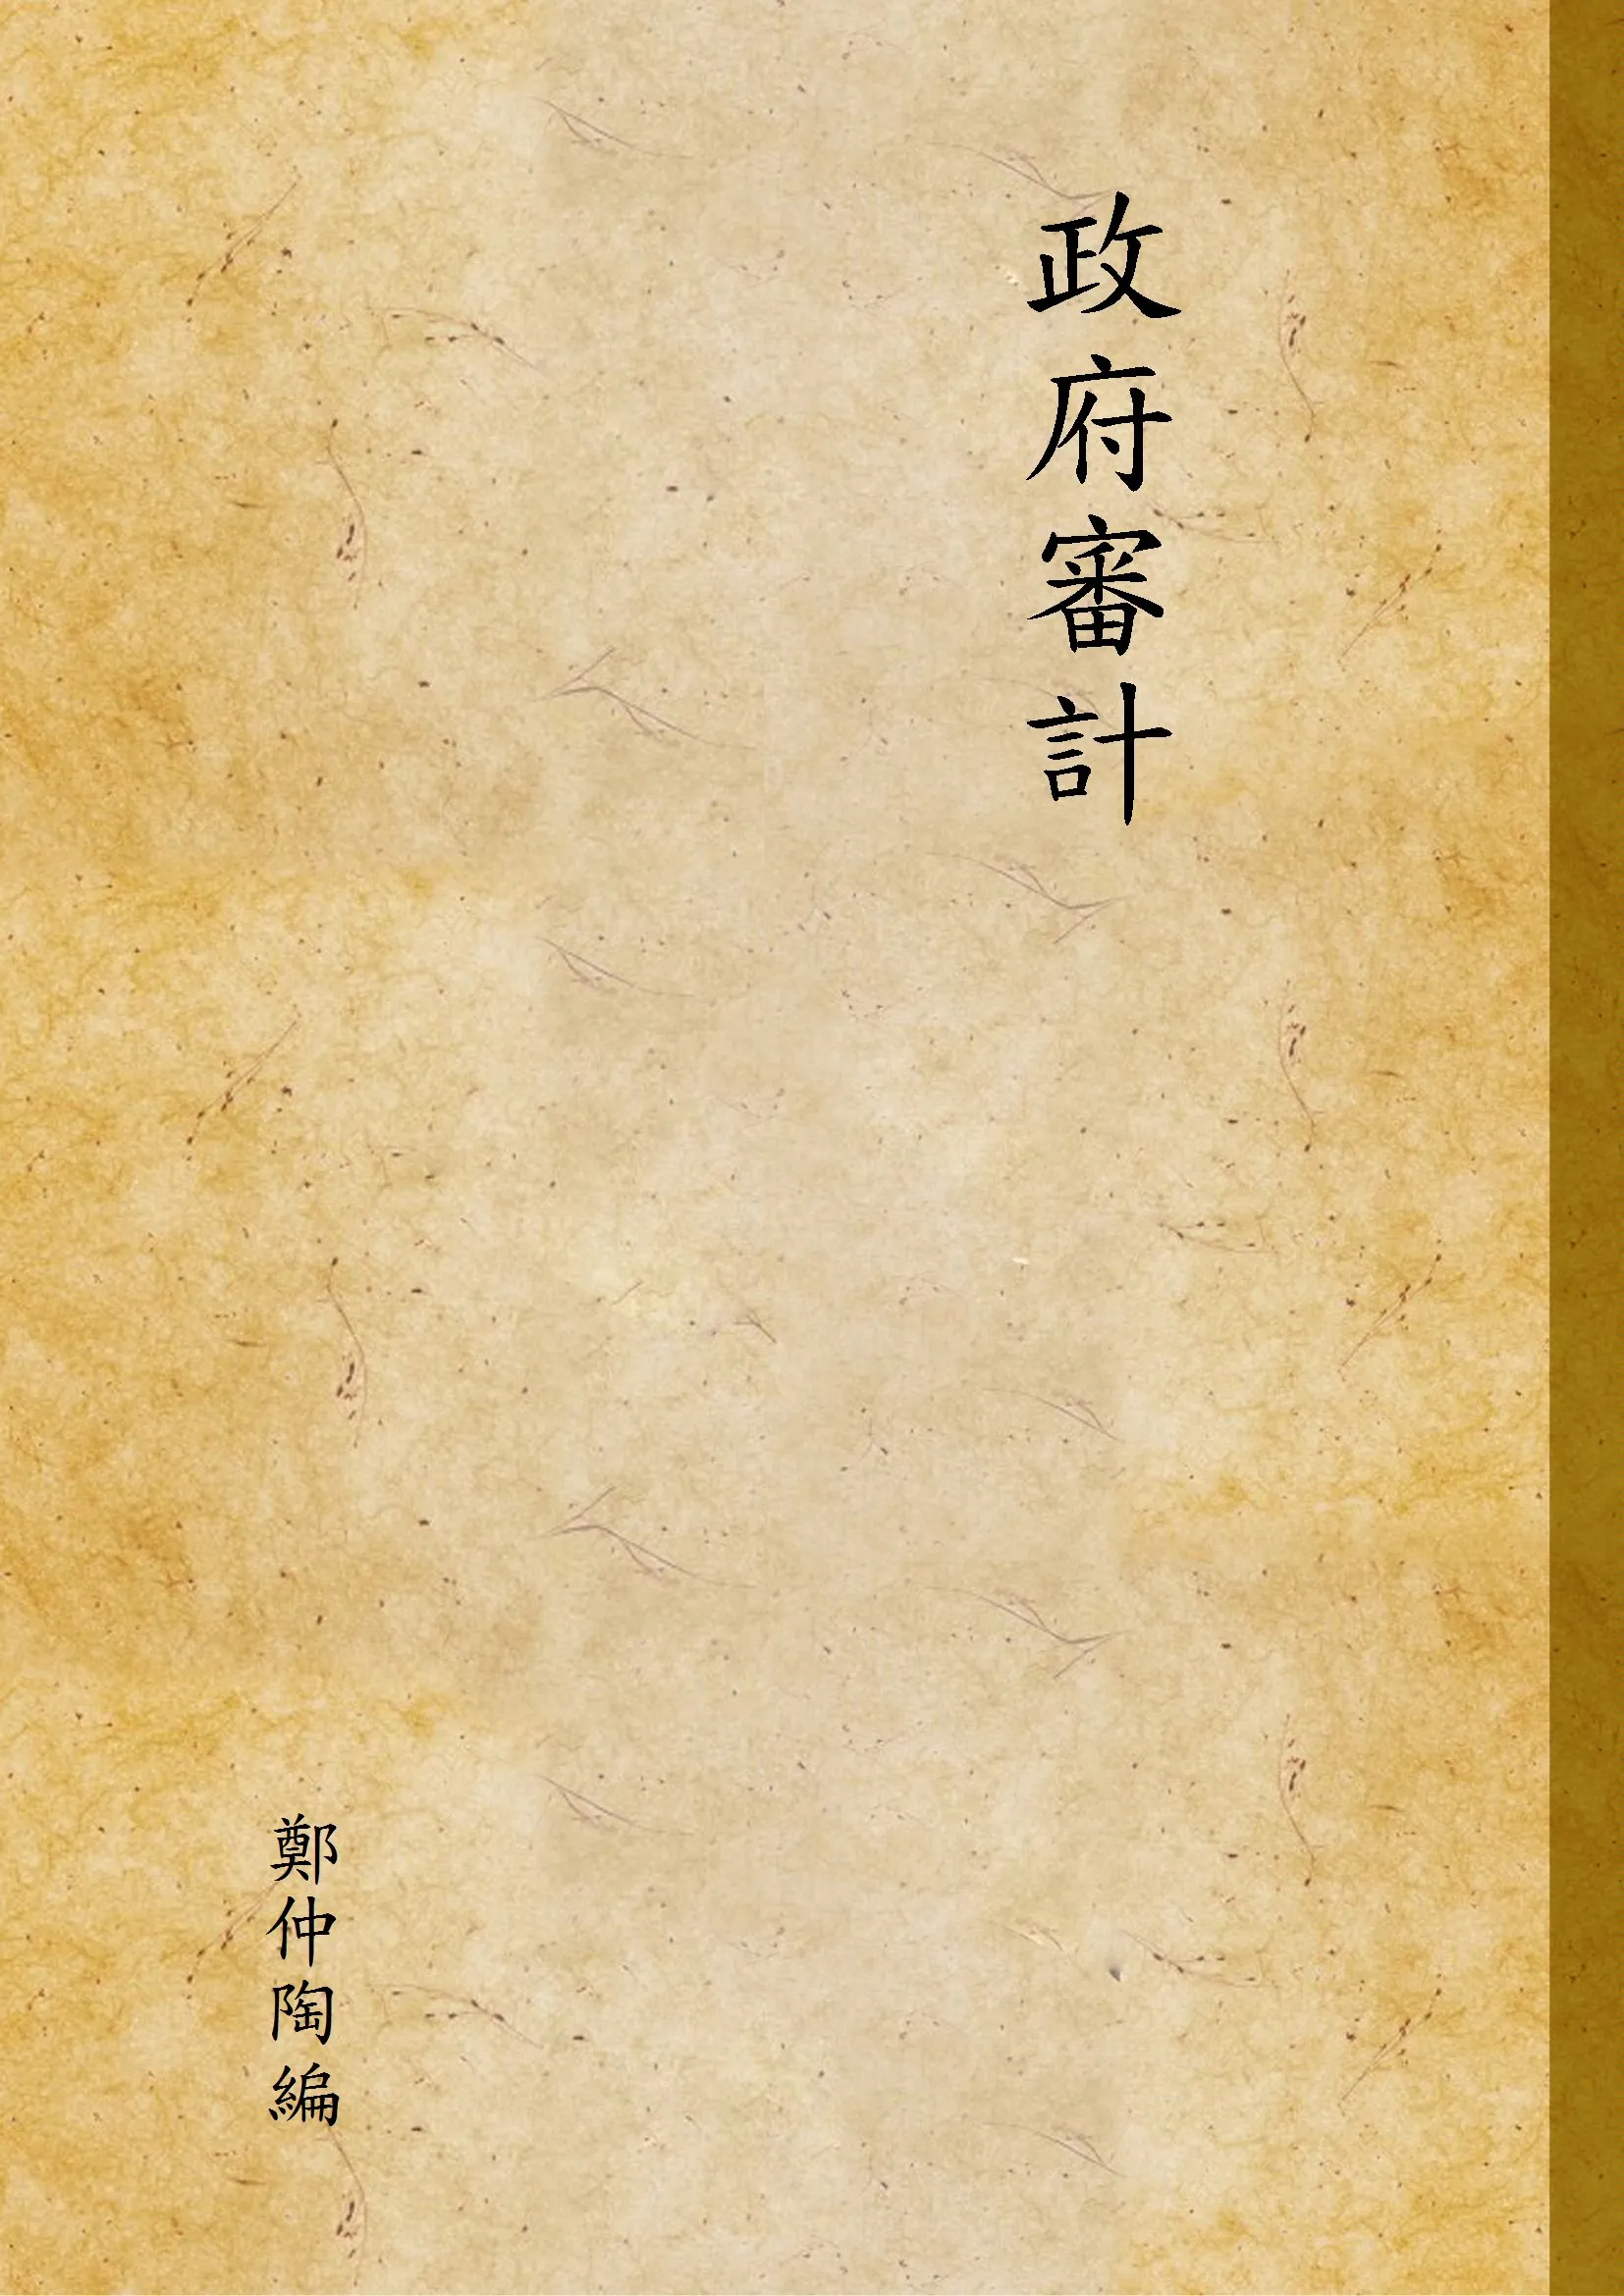 政府審計
鄭仲陶編